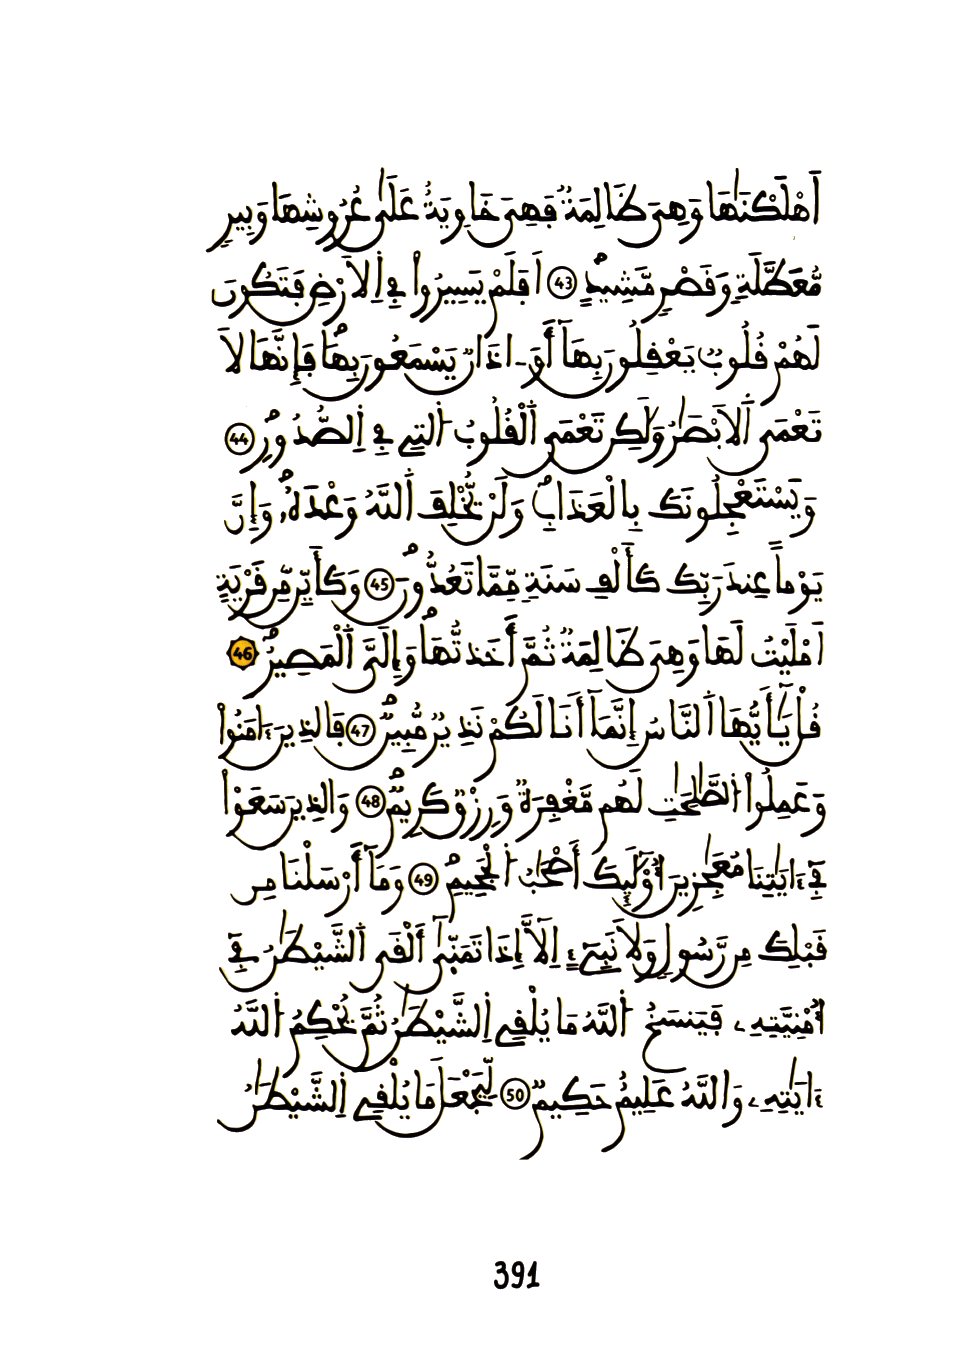 أَهْلَكْنَٰهَا وَهِيَ ظَالِمَةٞ فَهِيَ خَاوِيَةٌ عَلَىٰ عُرُوشِهَا وَبِيرٖ
مُّعَطَّلَةٖ وَقَصْرٖ مَّشِيدٍ 43 أَفَلَمْ يَسِيرُواْ فِے اِ۬لَارْضِ فَتَكُونَ
لَهُمْ قُلُوبٞ يَعْقِلُونَ بِهَآ أَوَ اٰذَانٞ يَسْمَعُونَ بِهَا فَإِنَّهَا لَا
تَعْمَى اَ۬لَابْصَٰرُ وَلَٰكِن تَعْمَى اَ۬لْقُلُوبُ اُ۬لتِے فِے اِ۬لصُّدُورِ 44
وَيَسْتَعْجِلُونَكَ بِالْعَذَابِ وَلَنْ يُّخْلِفَ اَ۬للَّهُ وَعْدَهُۥ وَإِنَّ
يَوْماً عِندَ رَبِّكَ كَأَلْفِ سَنَةٖ مِّمَّا تَعُدُّونَ 45 وَكَأَيِّن مِّن قَرْيَةٍ
أَمْلَيْتُ لَهَا وَهِيَ ظَالِمَةٞ ثُمَّ أَخَذتُّهَا وَإِلَيَّ اَ۬لْمَصِيرُ 46
قُلْ يَٰٓأَيُّهَا اَ۬لنَّاسُ إِنَّمَآ أَنَا لَكُمْ نَذِيرٞ مُّبِينٞ 47 فَالذِينَ ءَامَنُواْ
وَعَمِلُواْ اُ۬لصَّٰلِحَٰتِ لَهُم مَّغْفِرَةٞ وَرِزْقٞ كَرِيمٞ 48 وَالذِينَ سَعَوْاْ
فِےٓ ءَايَٰتِنَا مُعَٰجِزِينَ أُوْلَٰٓئِكَ أَصْحَٰبُ اُ۬لْجَحِيمِ 49 وَمَآ أَرْسَلْنَا مِن
قَبْلِكَ مِن رَّسُولٖ وَلَا نَبِےٓءٍ اِلَّآ إِذَا تَمَنَّىٰٓ أَلْقَى اَ۬لشَّيْطَٰنُ فِےٓ
أُمْنِيَّتِهِۦ فَيَنسَخُ اُ۬للَّهُ مَا يُلْقِے اِ۬لشَّيْطَٰنُ ثُمَّ يُحْكِمُ اُ۬للَّهُ
ءَايَٰتِهِۦ وَاللَّهُ عَلِيمٌ حَكِيمٞ 50 لِّيَجْعَلَ مَا يُلْقِے اِ۬لشَّيْطَٰنُ
391